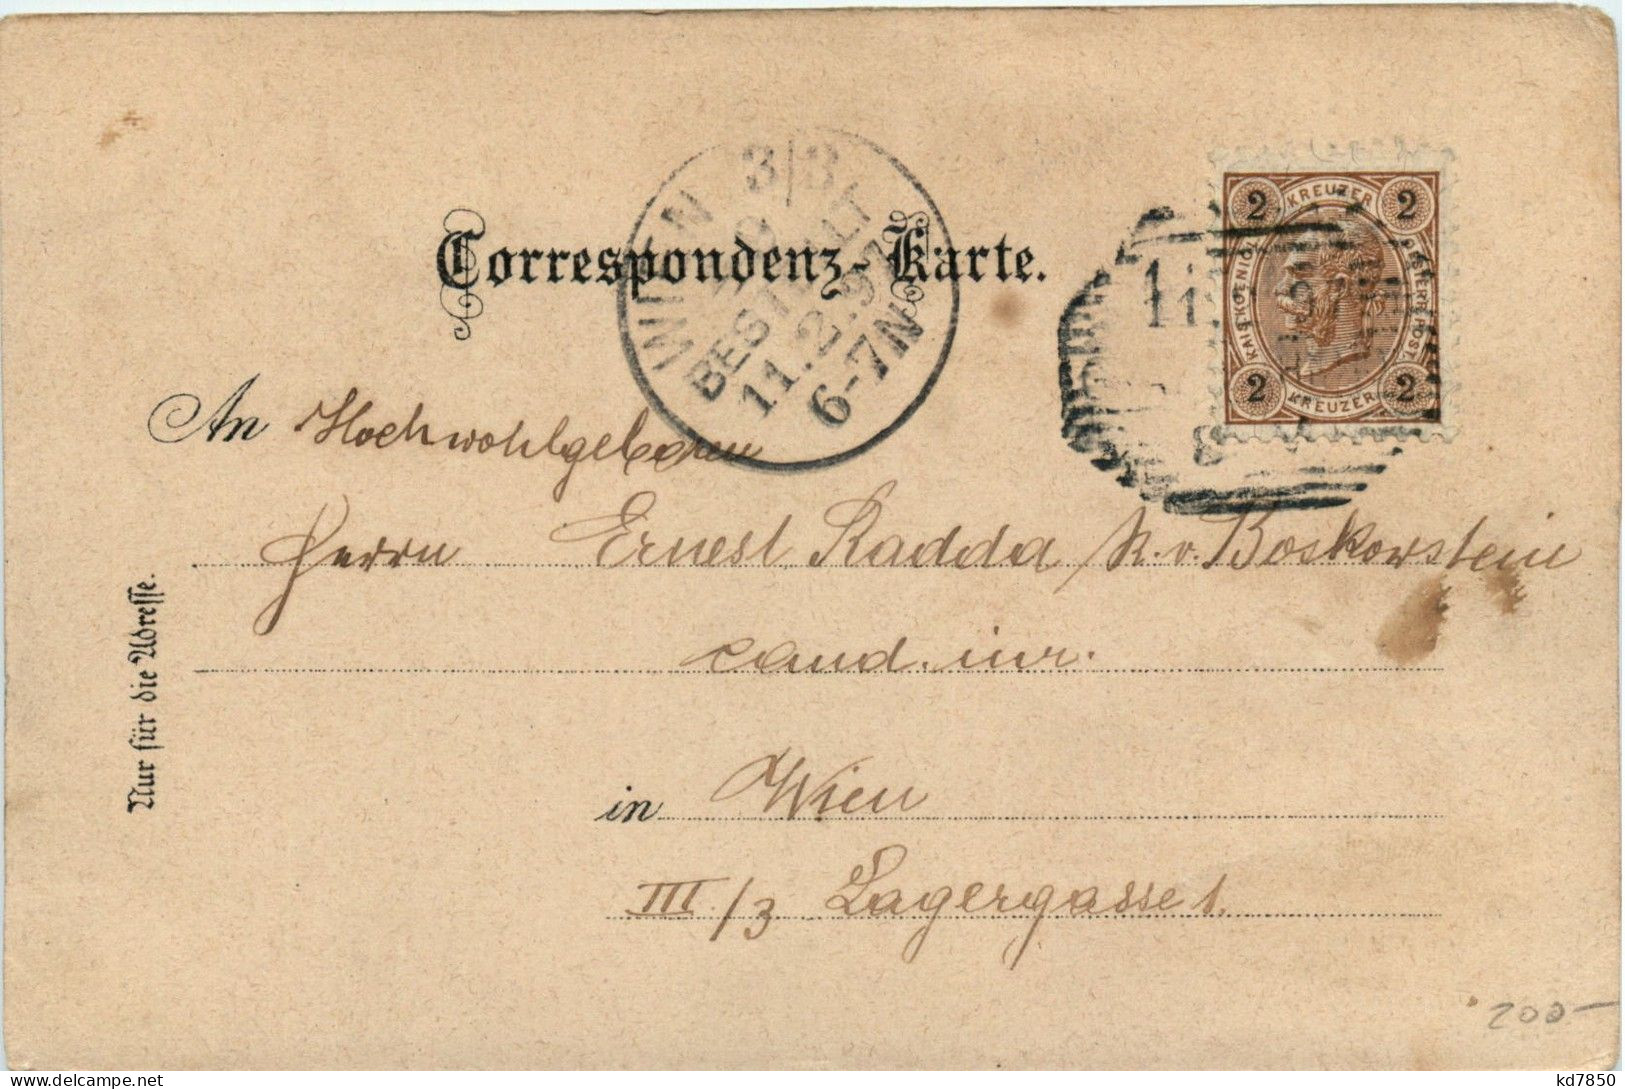 Correspondenz-Karte.
WIEN 3/3
BESTELLT
11.2.97
6-7N
2 KREUZER 2
KAIS. KOENIGL. OESTERR. POST.
2 KREUZER 2
An Hochwohlgeboren
Herrn Ernest Radda R. v. Boskowstein
cand. iur.
in Wien
III/3 Lagergasse 1.
Nur für die Adresse.
200-
kd7850